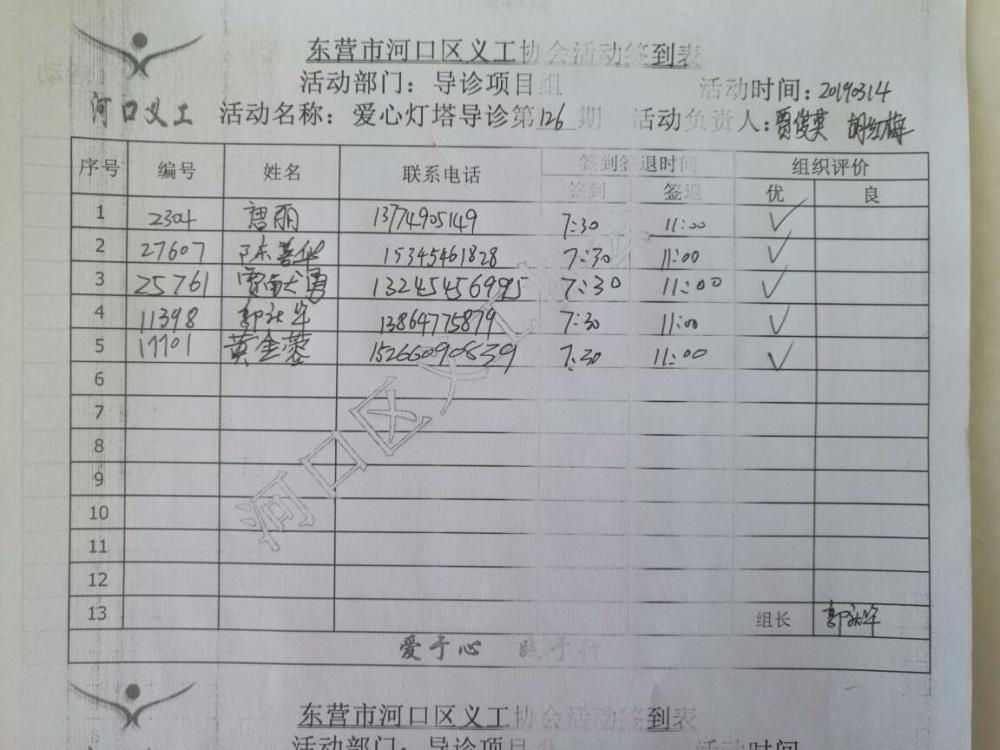 东营市河口区义工协会活动签到表
活动部门：导诊项目组 活动时间：20190314
河口义工 活动名称：爱心灯塔导诊第126期 活动负责人：贾俊英 胡红梅
序号 编号 姓名 联系电话 签到签退时间 组织评价
签到 签退 优 良
1 2304 唐丽 13774905149 7:30 11:00 ✓
2 27607 陈善华 15345461828 7:30 11:00 ✓
3 25761 13245456995 7:30 11:00 ✓
4 11398 郭秋华 13864775879 7:30 11:00 ✓
5 17701 黄金蓉 15266090839 7:30 11:00 ✓
6
7
8
9
10
11
12
13 组长 郭秋华
爱于心 践于行
河口区义工协会
东营市河口区义工协会活动签到表
活动部门：导诊项目组 活动时间